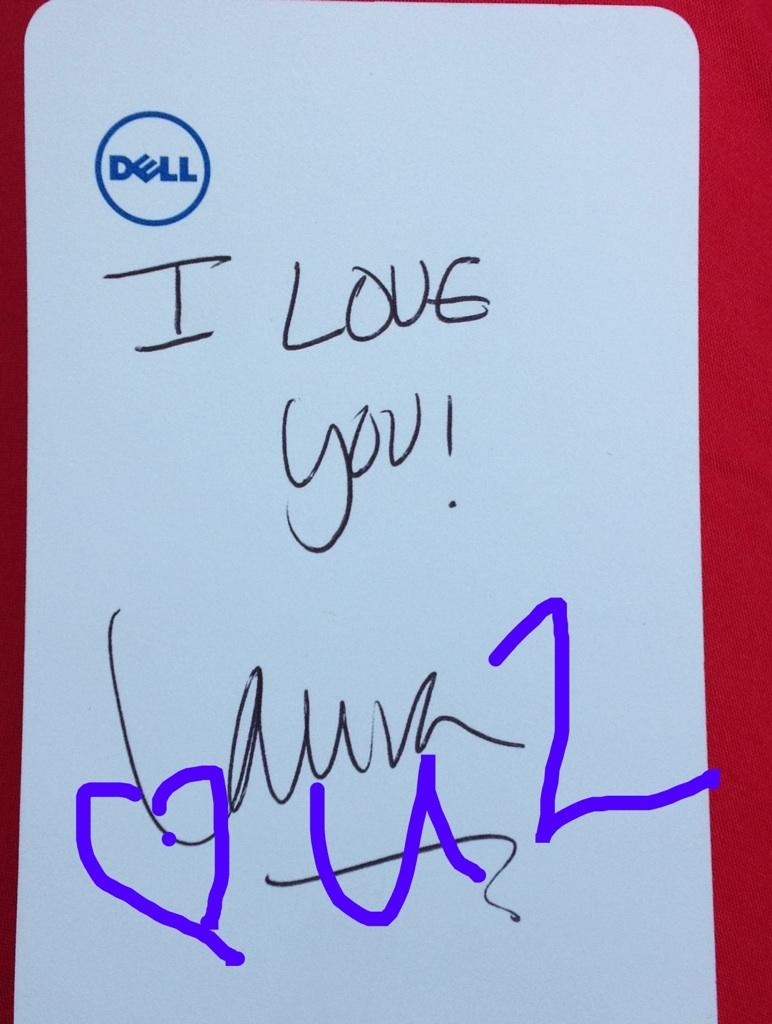 DELL
I LOVE
YOU!
Laura
♡ u 2